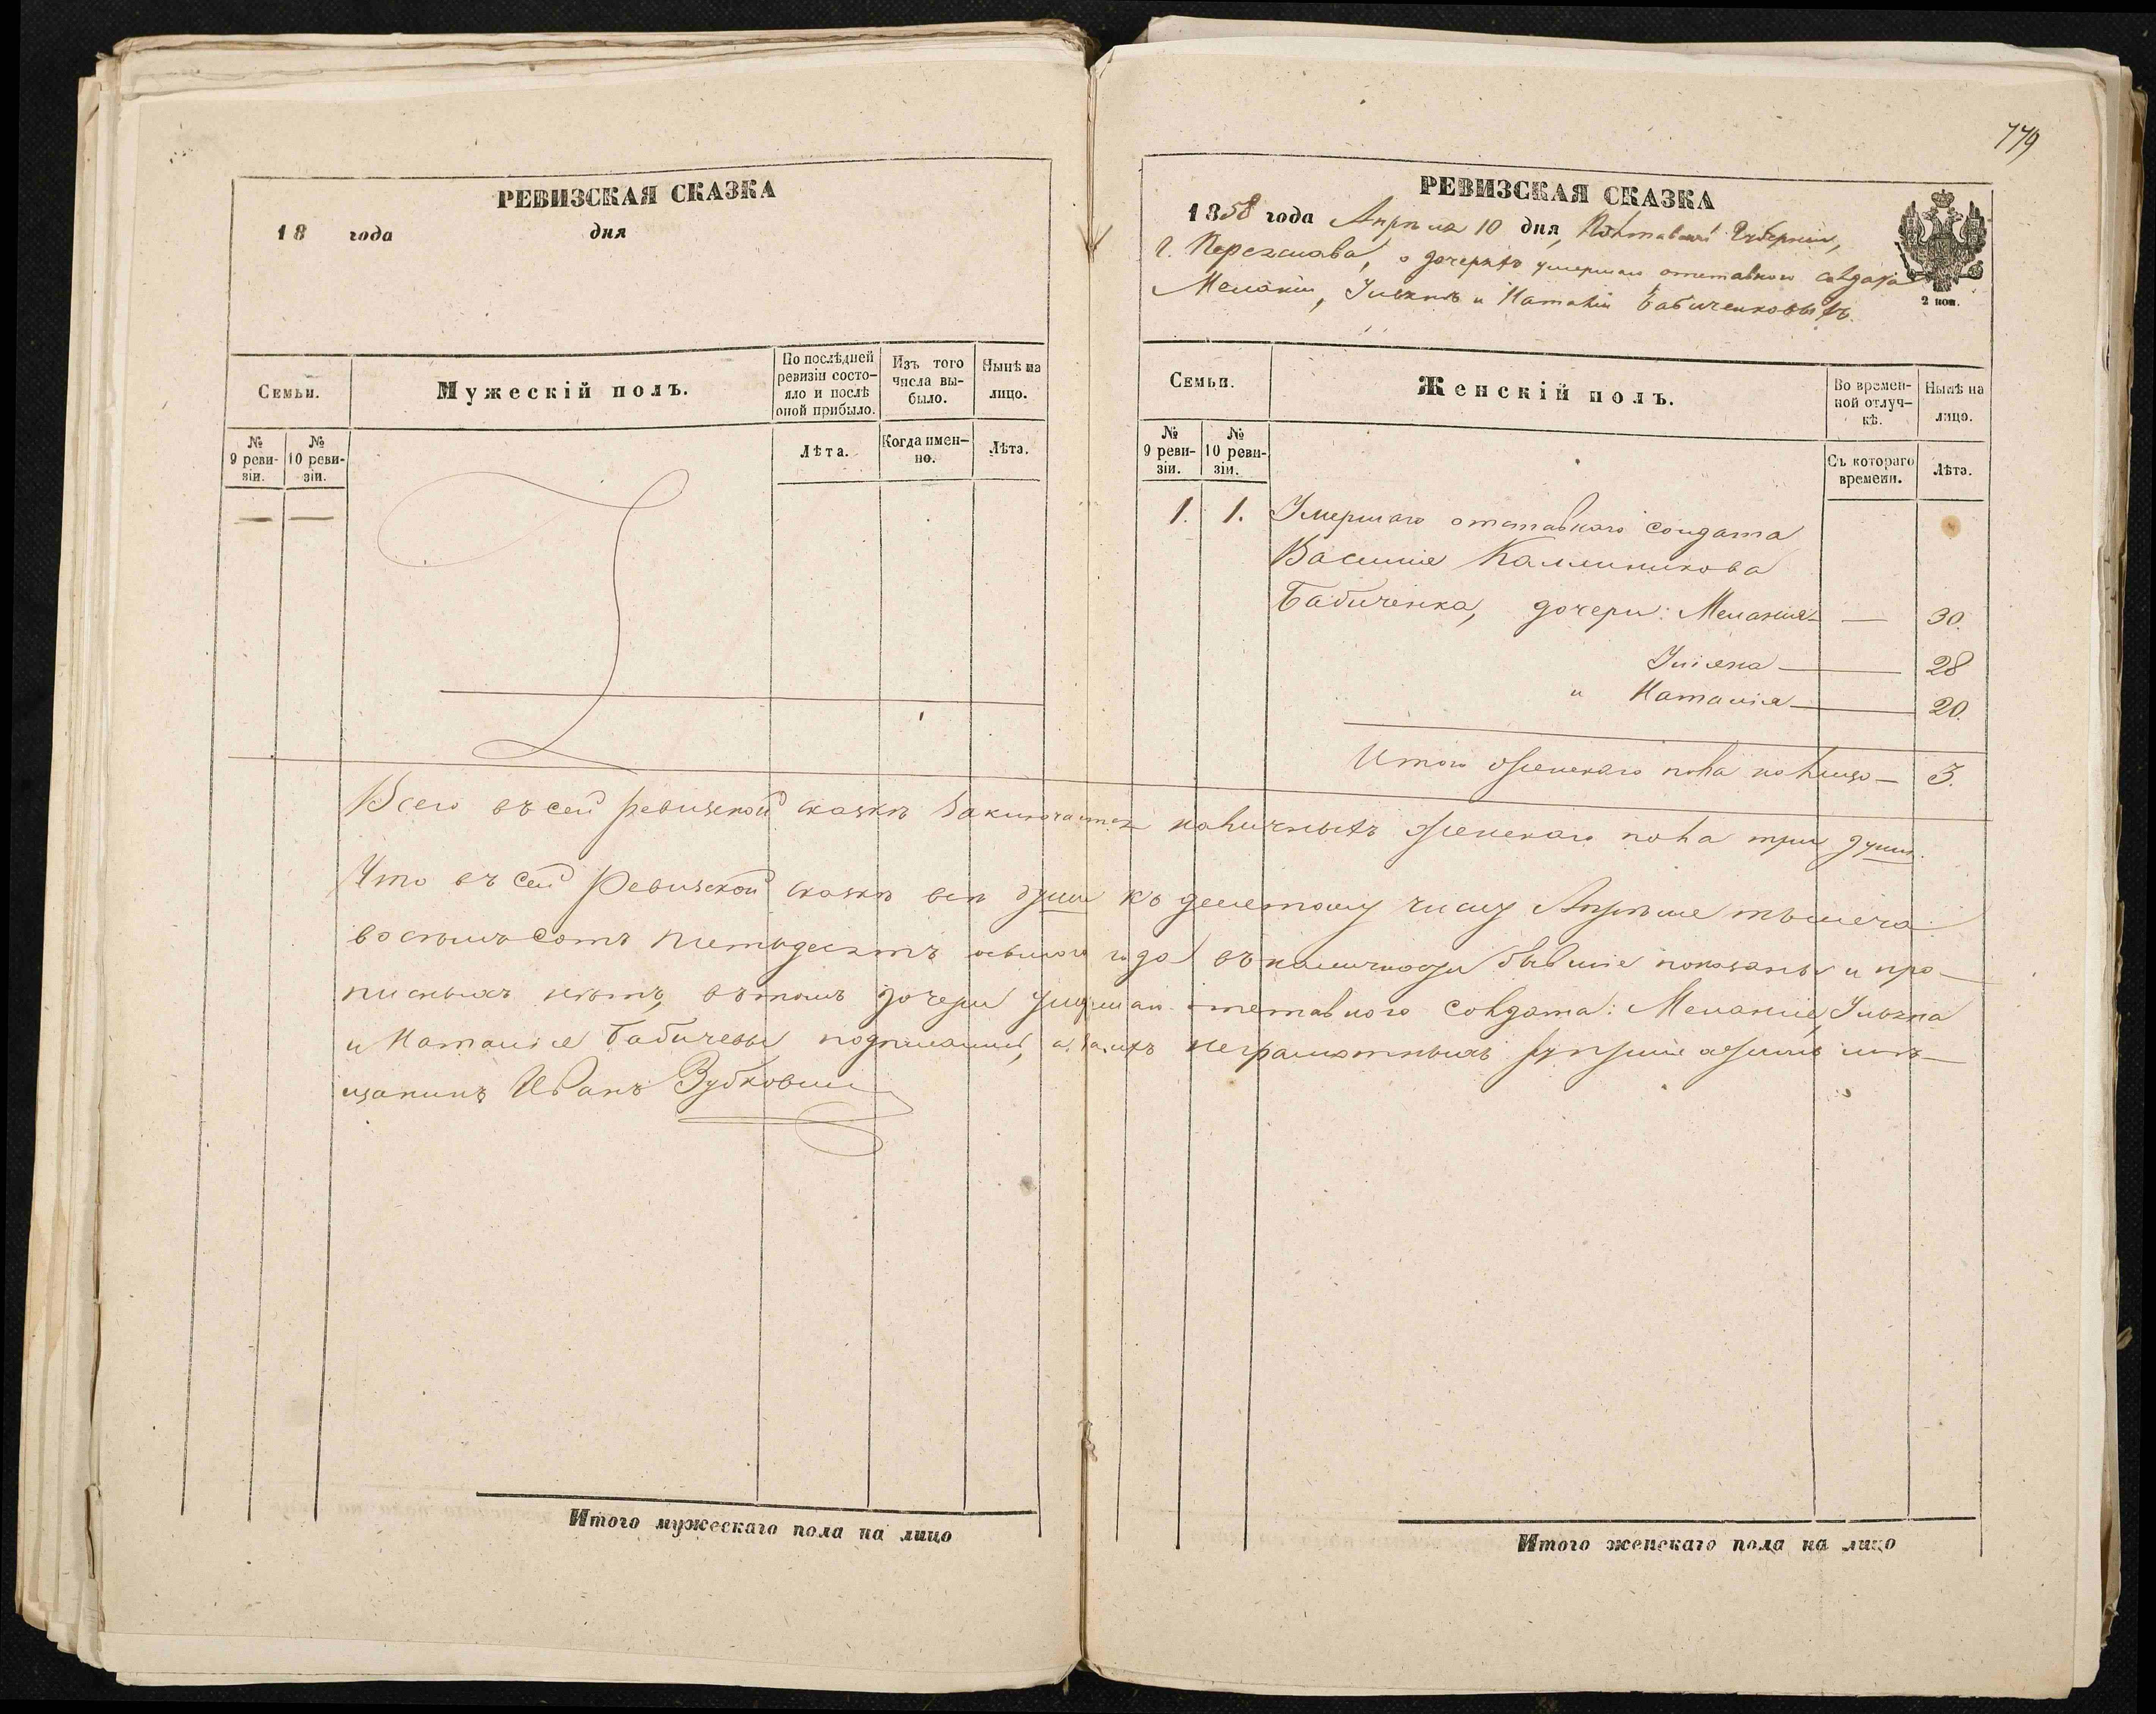 РЕВИЗСКАЯ СКАЗКА
18 года дня
Семьи.
Мужескій полъ.
По послѣдней ревизіи состояло и послѣ оной прибыло.
Изъ того числа выбыло.
Нынѣ на лицо.
№ 9 ревизіи.
№ 10 ревизіи.
Лѣта.
Когда именно.
Лѣта.
— —
Итого мужескаго пола на лицо
779
РЕВИЗСКАЯ СКАЗКА
1858 года Апрѣля 10 дня, Полтавской Губерніи,
г. Переяслава, о дочеряхъ умершаго отставного солдата
Меланіи, Ульянѣ и Наталіи Бабиченковыхъ.
2 коп.
Семьи.
Женскій полъ.
Во временной отлучкѣ.
Нынѣ на лицо.
№ 9 ревизіи.
№ 10 ревизіи.
Съ котораго времени.
Лѣта.
1. 1. Умершаго отставнаго солдата
Василія Калиникова
Бабиченка, дочери: Меланія — 30.
Уліяна — 28
и Наталія — 20.
Итого женскаго пола на лицо — 3.
Всего въ сей ревизской сказкѣ заключается наличныхъ женскаго пола три души.
Что въ сей Ревизской сказкѣ всѣ души къ десятому числу Апрѣля тысяча
восемьсотъ пятьдесятъ осьмого года въ наличности бывшіе показаны и про-
писныхъ нѣтъ, въ томъ дочери умершаго отставного солдата: Меланія, Ульяна
и Наталія Бабичевы подписались, а за ихъ неграмотныхъ мѣ-
щанинъ Иванъ Зубкович
Итого женскаго пола на лицо